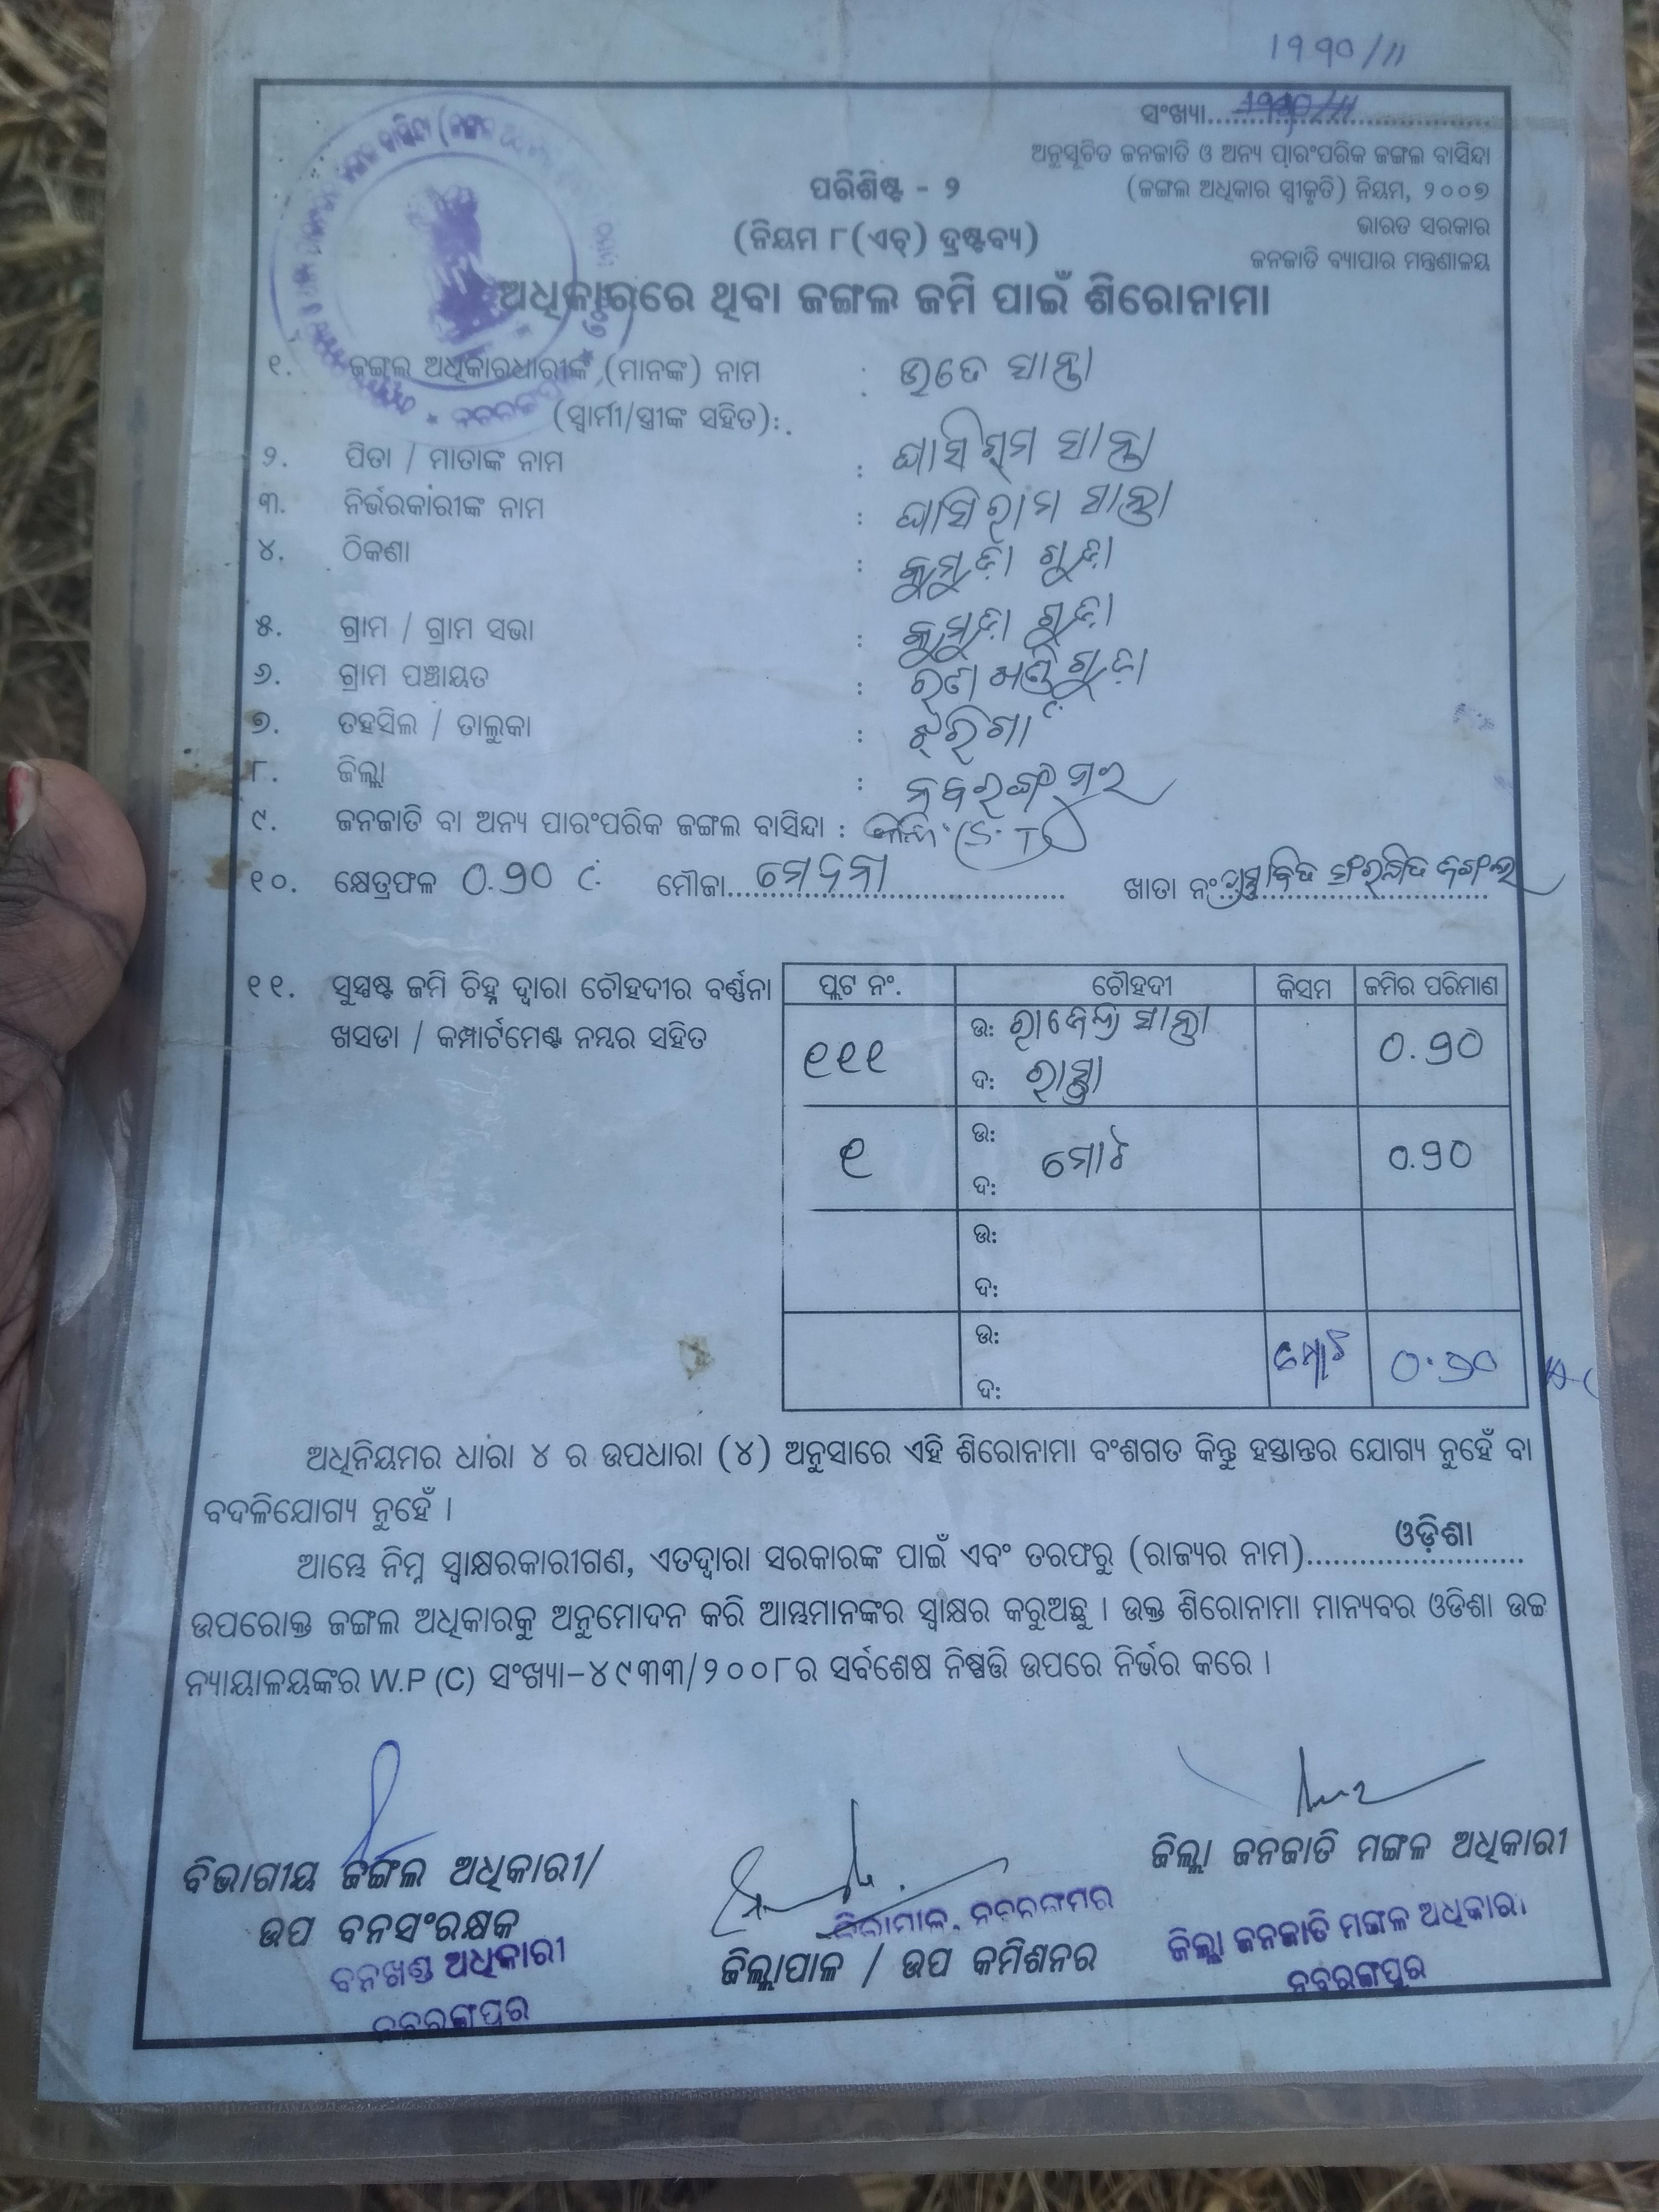 ୨୩୨୦/୬୬
ସଂଖ୍ୟା..............................
ଅନୁସୂଚିତ ଜନଜାତି ଓ ଅନ୍ୟ ପାରଂପରିକ ଜଙ୍ଗଲ ବାସିନ୍ଦା
(ଜଙ୍ଗଲ ଅଧିକାର ସ୍ୱୀକୃତି) ନିୟମ, ୨୦୦୭
ଭାରତ ସରକାର
ଜନଜାତି ବ୍ୟାପାର ମନ୍ତ୍ରଣାଳୟ
ପରିଶିଷ୍ଟ - ୨
(ନିୟମ ୮(ଏଚ୍) ଦ୍ରଷ୍ଟବ୍ୟ)
ଅଧିକାରରେ ଥିବା ଜଙ୍ଗଲ ଜମି ପାଇଁ ଶିରୋନାମା
୧. ଜଙ୍ଗଲ ଅଧିକାରଧାରୀଙ୍କ (ମାନଙ୍କ) ନାମ : ସାନ୍ତା
(ସ୍ୱାମୀ/ସ୍ତ୍ରୀଙ୍କ ସହିତ):
୨. ପିତା / ମାତାଙ୍କ ନାମ : ଘାସିରାମ ସାନ୍ତା
୩. ନିର୍ଭରକାରୀଙ୍କ ନାମ : ଘାସିରାମ ସାନ୍ତା
୪. ଠିକଣା : କୁମୁଡ଼ା ଗୁଡ଼ା
୫. ଗ୍ରାମ / ଗ୍ରାମ ସଭା : କୁମୁଡ଼ା ଗୁଡ଼ା
୬. ଗ୍ରାମ ପଞ୍ଚାୟତ :
୭. ତହସିଲ / ତାଲୁକା : ଝରିଗାଁ
୮. ଜିଲ୍ଲା : ନବରଙ୍ଗପୁର
୯. ଜନଜାତି ବା ଅନ୍ୟ ପାରଂପରିକ ଜଙ୍ଗଲ ବାସିନ୍ଦା : (S.T)
୧୦. କ୍ଷେତ୍ରଫଳ ୦.୨୦ ମୌଜା.............................. ଖାତା ନଂ..............................
୧୧. ସୁସ୍ପଷ୍ଟ ଜମି ଚିହ୍ନ ଦ୍ୱାରା ଚୌହଦୀର ବର୍ଣ୍ଣନା
ଖସଡା / କମ୍ପାର୍ଟମେଣ୍ଟ ନମ୍ବର ସହିତ
ପ୍ଲଟ ନଂ. ଚୌହଦୀ କିସମ ଜମିର ପରିମାଣ
୧୧୧ ଉ: ସାନ୍ତା ୦.୨୦
ଦ: ରାସ୍ତା
୧ ଉ: ମୋଟ ୦.୨୦
ଦ:
ଉ:
ଦ:
ଉ: ମୋଟ ୦.୨୦
ଦ:
ଅଧିନିୟମର ଧାରା ୪ ର ଉପଧାରା (୪) ଅନୁସାରେ ଏହି ଶିରୋନାମା ବଂଶଗତ କିନ୍ତୁ ହସ୍ତାନ୍ତର ଯୋଗ୍ୟ ନୁହେଁ ବା
ବଦଳିଯୋଗ୍ୟ ନୁହେଁ ।
ଆମ୍ଭେ ନିମ୍ନ ସ୍ୱାକ୍ଷରକାରୀଗଣ, ଏତଦ୍ୱାରା ସରକାରଙ୍କ ପାଇଁ ଏବଂ ତରଫରୁ (ରାଜ୍ୟର ନାମ)......ଓଡ଼ିଶା......
ଉପରୋକ୍ତ ଜଙ୍ଗଲ ଅଧିକାରକୁ ଅନୁମୋଦନ କରି ଆମ୍ଭମାନଙ୍କର ସ୍ୱାକ୍ଷର କରୁଅଛୁ । ଉକ୍ତ ଶିରୋନାମା ମାନ୍ୟବର ଓଡିଶା ଉଚ୍ଚ
ନ୍ୟାୟାଳୟଙ୍କର W.P (C) ସଂଖ୍ୟା-୪୯୩୩/୨୦୦୮ର ସର୍ବଶେଷ ନିଷ୍ପତ୍ତି ଉପରେ ନିର୍ଭର କରେ ।
ବିଭାଗୀୟ ଜଙ୍ଗଲ ଅଧିକାରୀ/
ଉପ ବନସଂରକ୍ଷକ
ବନଖଣ୍ଡ ଅଧିକାରୀ
ନବରଙ୍ଗପୁର
ଜିଲ୍ଲାପାଳ, ନବରଙ୍ଗପୁର
ଜିଲ୍ଲାପାଳ / ଉପ କମିଶନର
ଜିଲ୍ଲା ଜନଜାତି ମଙ୍ଗଳ ଅଧିକାରୀ
ଜିଲ୍ଲା ଜନଜାତି ମଙ୍ଗଳ ଅଧିକାରୀ
ନବରଙ୍ଗପୁର